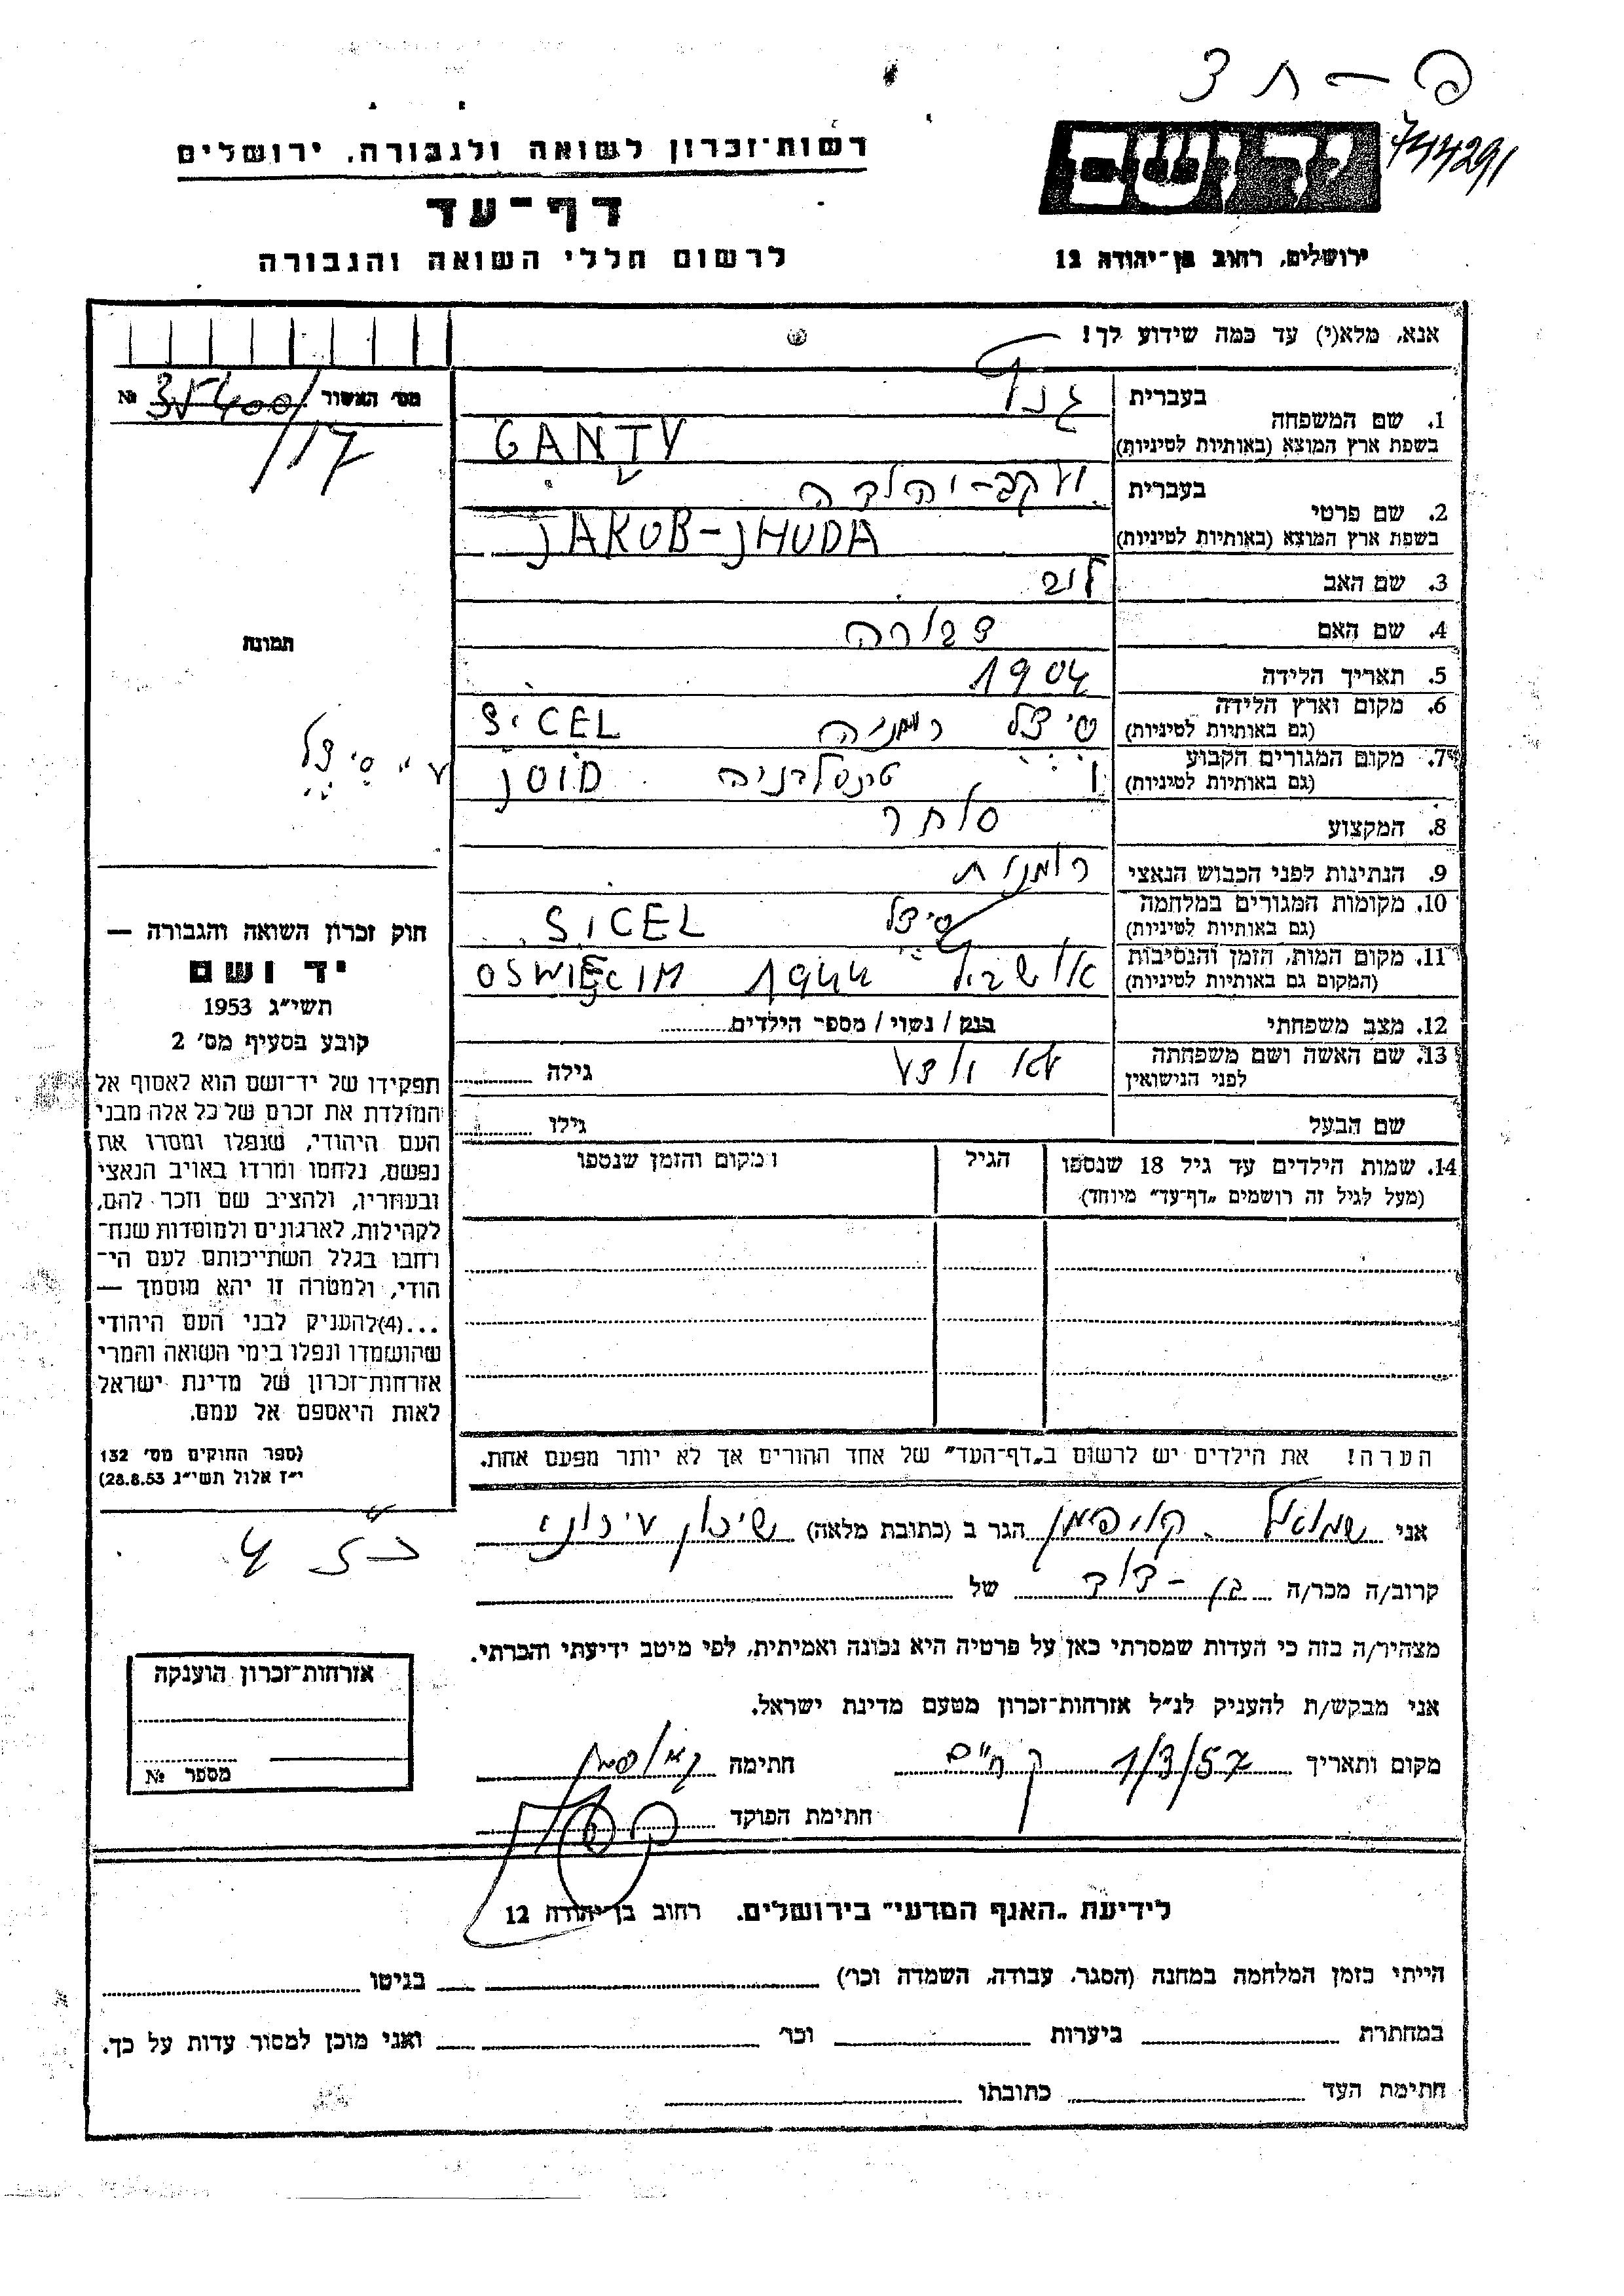 פ – ת 3
744291
ידושם
ירושלים, רחוב בן־יהודה 12
רשות־זכרון לשואה ולגבורה, ירושלים
דף־עד
לרשום חללי השואה והגבורה
אנא, מלא(י) עד כמה שידוע לך!
מס׳ האשור № 35400/
/17
1. שם המשפחה
בעברית
בשפת ארץ המוצא (באותיות לטיניות) GANTY
2. שם פרטי
בעברית יעקב-יהודה
בשפת ארץ המוצא (באותיות לטיניות) JAKUB-JHUDA
3. שם האב לוב
4. שם האם דבורה
5. תאריך הלידה 1904
6. מקום וארץ הלידה (גם באותיות לטיניות) סיצל רומניה SiCEL
7. מקום המגורים הקבוע (גם באותיות לטיניות) טרנסלבניה JOID
8. המקצוע סוחר
9. הנתינות לפני הכבוש הנאצי רומנית
10. מקומות המגורים במלחמה (גם באותיות לטיניות) סיצל SiCEL
11. מקום המות, הזמן והנסיבות (המקום גם באותיות לטיניות) אושביץ 1944 OSWIĘCIM
12. מצב משפחתי רנק / נשוי / מספר הילדים
13. שם האשה ושם משפחתה לפני הנישואין לא ידוע גילה
שם הבעל גילו
14. שמות הילדים עד גיל 18 שנספו הגיל ומקום והזמן שנספו
(מעל לגיל זה רושמים „דף־עד״ מיוחד)
הערה! את הילדים יש לרשום ב„דף־העד״ של אחד ההורים אך לא יותר מפעם אחת.
תמונה
ע״י סיצל
חוק זכרון השואה והגבורה —
יד ושם
תשי״ג 1953
קובע בסעיף מס׳ 2
תפקידו של יד־ושם הוא לאסוף אל
המולדת את זכרם של כל אלה מבני
העם היהודי, שנפלו ומסרו את
נפשם, נלחמו ומרדו באויב הנאצי
ובעוזריו, ולהציב שם וזכר להם,
לקהילות, לארגונים ולמוסדות שנח־
רחבו בגלל השתייכותם לעם הי־
הודי, ולמטרה זו יהא מוסמך —
...(4)להעניק לבני העם היהודי
שהושמדו ונפלו בימי השואה והמרי
אזרחות־זכרון של מדינת ישראל
לאות היאספם אל עמם.
(ספר החוקים מס׳ 132
י״ז אלול תשי״ג 28.8.53)
אני שמואל קויפמן הגר ב (כתובת מלאה) שיכון עירוני
קרוב/ה מכר/ה בן-דוד של
מצהיר/ה בזה כי העדות שמסרתי כאן על פרטיה היא נכונה ואמיתית, לפי מיטב ידיעתי והכרתי.
אני מבקש/ת להעניק לנ״ל אזרחות־זכרון מטעם מדינת ישראל.
מקום ותאריך 1/3/57 ק חיים חתימה קאופמן
חתימת הפוקד
אזרחות־זכרון הוענקה
מספר №
לידיעת „האגף המדעי״ בירושלים, רחוב בן־יהודה 12
הייתי בזמן המלחמה במחנה (הסגר, עבודה, השמדה וכו׳) בגיטו
במחתרת ביערות וכו׳ ואני מוכן למסור עדות על כך.
חתימת העד כתובתו